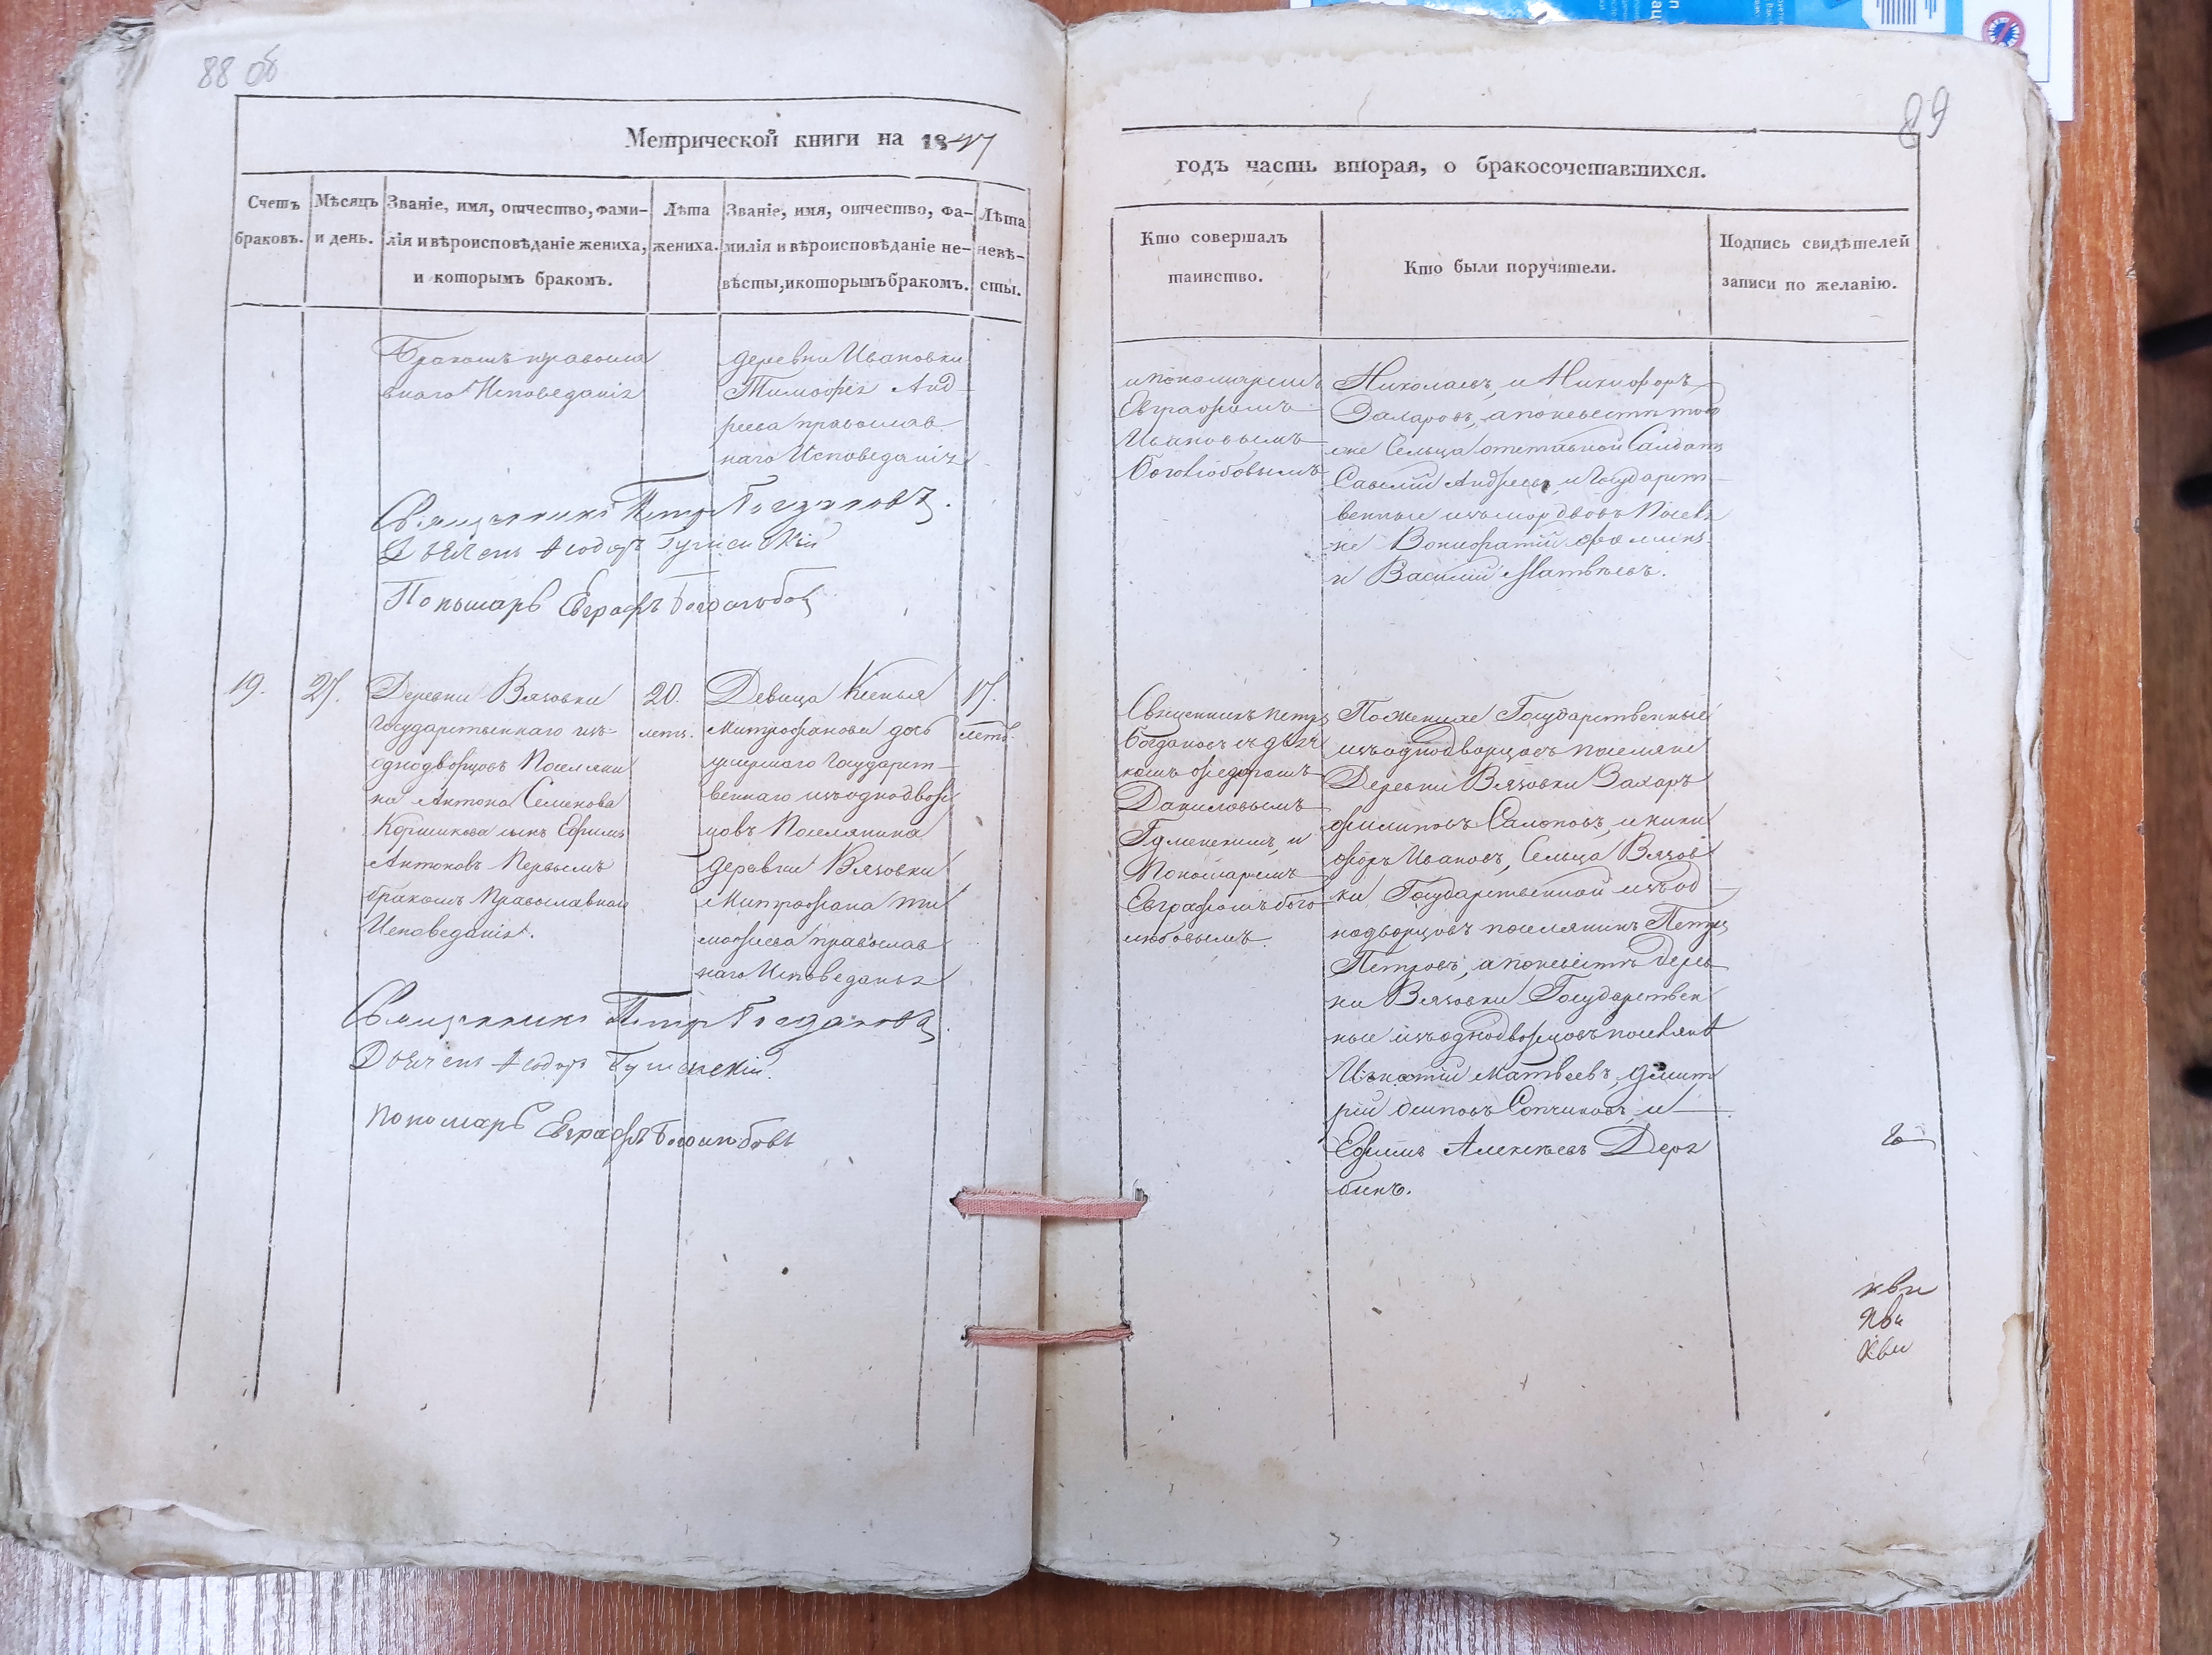 88 об
Метрической книги на 1847
Счетъ браковъ.
Мѣсяцъ и день.
Званіе, имя, отчество, фами-
лія и вѣроисповѣданіе жениха,
и которымъ бракомъ.
Лѣта
жениха.
Званіе, имя, отчество, фа-
милія и вѣроисповѣданіе не-
вѣсты, и которымъ бракомъ.
Лѣта
невѣ-
сты.
Бракомъ правосла
внаго Исповеданія
деревни Ивановки
Тимофея Анд
реева православ
наго Исповеданія
Священникъ Петръ Богдановъ.
Дьячекъ Ѳеодоръ
Пономарь Евграфъ Боголюбовъ
19.
27.
Деревни Вязовки
Государственнаго изъ
однодворцовъ Поселяни
на Антона Семенова
Коршикова сынъ Ефимъ
Антоновъ Первымъ
бракомъ Православнаго
Исповеданія.
20.
летъ.
Девица Ксенья
Митрофанова дочь
умершаго Государст
веннаго изъ однодвор
цовъ Поселянина
деревни Вязовки
Митрофана Ти
мофиева православ
наго Исповеданья
17.
летъ.
Священникъ Петръ Богдановъ.
Дьячекъ Ѳеодоръ
Пономарь Евграфъ Боголюбовъ
89
годъ часть вторая, о бракосочетавшихся.
Кто совершалъ
таинство.
Кто были поручители.
Подпись свидѣтелей
записи по желанію.
и пономаремъ
Евграфомъ
Ивановымъ
Боголюбовымъ
Николаевъ, и Никифоръ
Захаровъ, а по невесте того
же Сельца отставной Салдатъ
Савелий Андреевъ, и Государст
венные изъ мордвовъ Поселя
не Вонифатий Фоминъ
и Василий Матвѣевъ.
Священникъ Петръ
Богдановъ съ дьяч
комъ Федоромъ
Даниловымъ
и
Пономаремъ
Евграфомъ Бого
любовымъ.
По женихе Государственные
изъ однодворцовъ поселяне
Деревни Вязовки Захаръ
Филиповъ и Ники
форъ Ивановъ, Сельца Вязов
ки Государственной изъ од
нодворцовъ поселянинъ Петръ
Петровъ, а по невесте дерев
ни Вязовки Государствен
ные изъ однодворцовъ поселяне
Игнатий Матвеевъ, Дмит
рий Осиповъ и
Ефимъ Алексѣевъ Деря
бинъ.